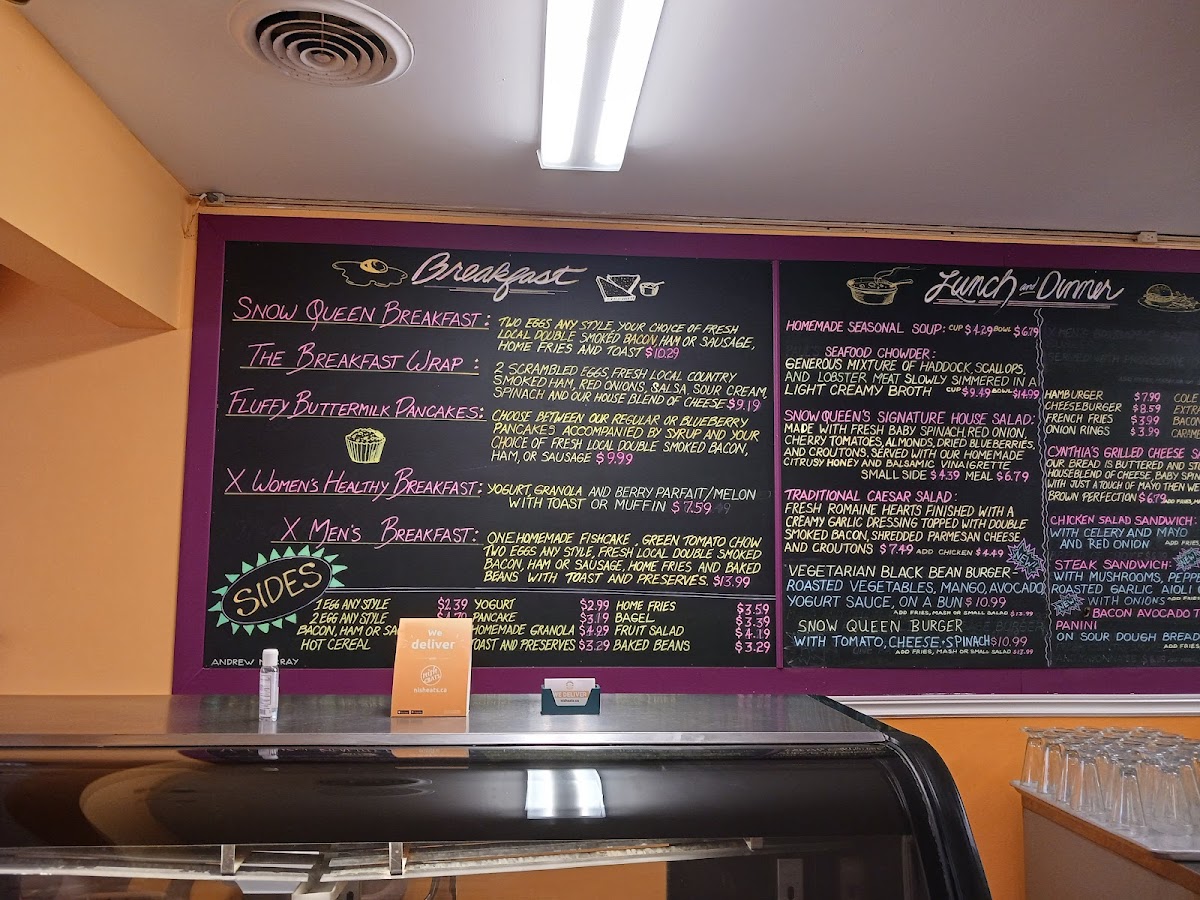 Breakfast
SNOW QUEEN BREAKFAST:
TWO EGGS ANY STYLE, YOUR CHOICE OF FRESH
LOCAL DOUBLE SMOKED BACON, HAM OR SAUSAGE,
HOME FRIES AND TOAST $10.29
THE BREAKFAST WRAP :
2 SCRAMBLED EGGS FRESH LOCAL COUNTRY
SMOKED HAM, RED ONIONS, SALSA, SOUR CREAM,
SPINACH AND OUR HOUSE BLEND OF CHEESE $9.19
FLUFFY BUTTERMILK PANCAKES:
CHOOSE BETWEEN OUR REGULAR OR BLUEBERRY
PANCAKES ACCOMPANIED BY SYRUP AND YOUR
CHOICE OF FRESH LOCAL DOUBLE SMOKED BACON,
HAM, OR SAUSAGE $9.99
X WOMEN'S HEALTHY BREAKFAST:
YOGURT, GRANOLA AND BERRY PARFAIT/MELON
WITH TOAST OR MUFFIN $7.59
X MEN'S BREAKFAST:
ONE HOMEMADE FISHCAKE, GREEN TOMATO CHOW
TWO EGGS ANY STYLE, FRESH LOCAL DOUBLE SMOKED
BACON, HAM OR SAUSAGE, HOME FRIES AND BAKED
BEANS WITH TOAST AND PRESERVES. $13.99
SIDES
1 EGG ANY STYLE $2.39
2 EGG ANY STYLE
BACON, HAM OR
HOT CEREAL
YOGURT $2.99
PANCAKE $3.19
HOMEMADE GRANOLA $4.99
TOAST AND PRESERVES $3.29
HOME FRIES $3.59
BAGEL $3.39
FRUIT SALAD $4.19
BAKED BEANS $3.29
ANDREW
Lunch and Dinner
HOMEMADE SEASONAL SOUP: CUP $4.29 BOWL $6.79
SEAFOOD CHOWDER:
GENEROUS MIXTURE OF HADDOCK, SCALLOPS,
AND LOBSTER MEAT SLOWLY SIMMERED IN A
LIGHT CREAMY BROTH CUP $9.49 BOWL $14.99
SNOW QUEEN'S SIGNATURE HOUSE SALAD:
MADE WITH FRESH BABY SPINACH, RED ONION,
CHERRY TOMATOES, ALMONDS, DRIED BLUEBERRIES,
AND CROUTONS. SERVED WITH OUR HOMEMADE
CITRUSY HONEY AND BALSAMIC VINAIGRETTE
SMALL SIDE $4.39 MEAL $6.79
TRADITIONAL CAESAR SALAD:
FRESH ROMAINE HEARTS FINISHED WITH A
CREAMY GARLIC DRESSING TOPPED WITH DOUBLE
SMOKED BACON, SHREDDED PARMESAN CHEESE
AND CROUTONS $7.49 ADD CHICKEN $4.49
VEGETARIAN BLACK BEAN BURGER -
ROASTED VEGETABLES, MANGO, AVOCADO,
YOGURT SAUCE, ON A BUN $10.99
ADD FRIES, MASH OR SMALL SALAD $13.99
SNOW QUEEN BURGER
WITH TOMATO, CHEESE + SPINACH $10.99
ADD FRIES, MASH OR SMALL SALAD $13.99
HAMBURGER $7.99
CHEESEBURGER $8.59
FRENCH FRIES $3.99
ONION RINGS $3.99
COLE
EXTRE
BACON
CARAM
CYNTHIA'S GRILLED CHEESE SA
OUR BREAD IS BUTTERED AND ST
HOUSEBLEND OF CHEESE, BABY SPIN
WITH JUST A TOUCH OF MAYO THEN WE
BROWN PERFECTION $6.79 ADD FRIES, M
CHICKEN SALAD SANDWICH:
WITH CELERY AND MAYO
AND RED ONION ADD FRIES,
STEAK SANDWICH:
WITH MUSHROOMS, PEPPE
ROASTED GARLIC AIOLI
WITH ONIONS ADD FRIES
BACON AVOCADO T
PANINI
ON SOUR DOUGH BREAD
ADD FRIES
we
deliver
hisheats.ca
WE DELIVER